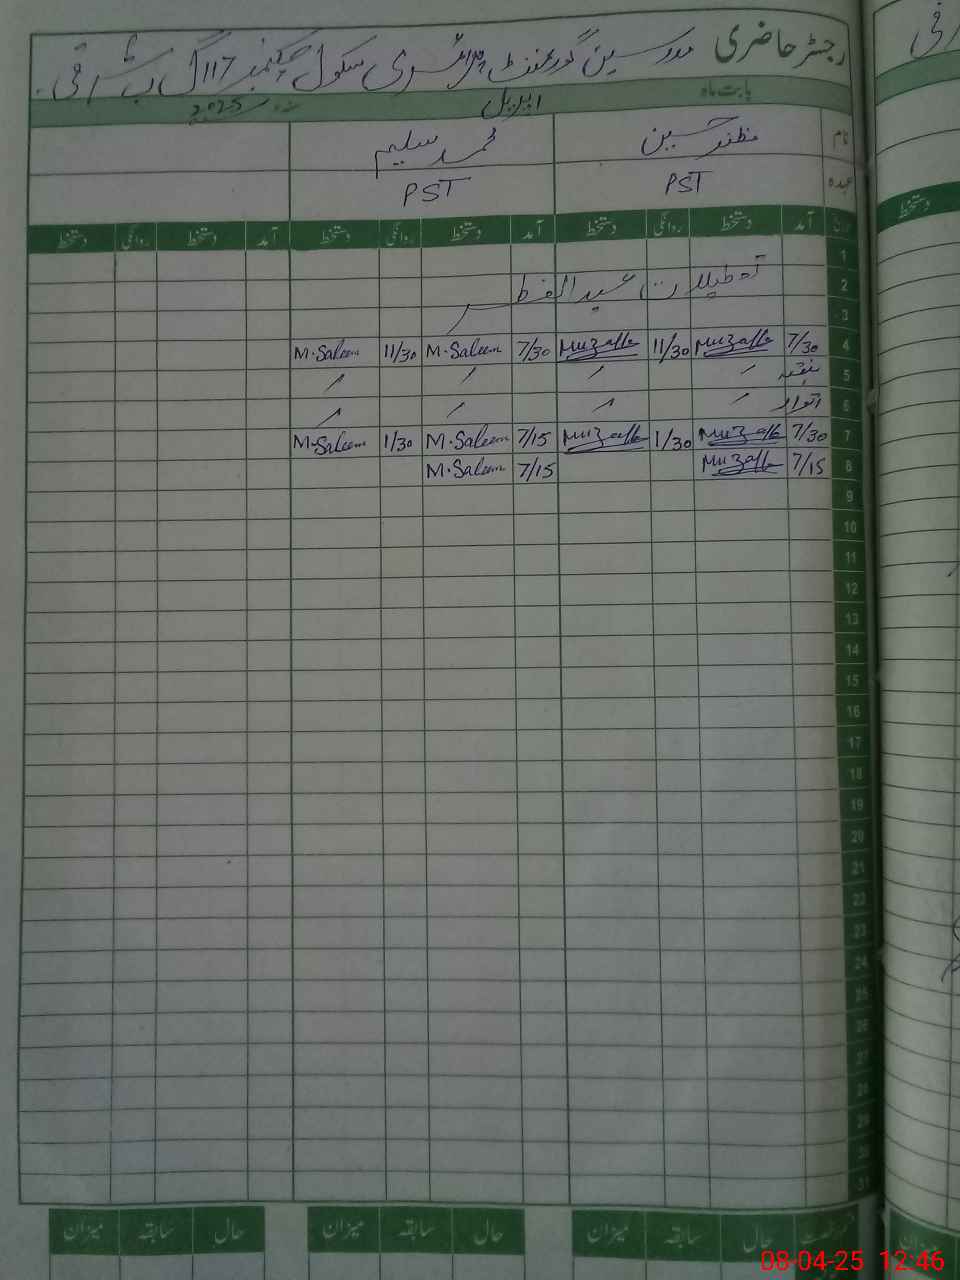 رجسٹر حاضری مدرسین گورنمنٹ پرائمری سکول چکنمبر 117 گ ب شرقی
بابت ماہ اپریل سنہ 2025
نام مظفر حسین محمد سلیم
عہدہ PST PST
تاریخ آمد دستخط روانگی دستخط آمد دستخط روانگی دستخط آمد دستخط روانگی دستخط
1
2 تعطیلات عید الفطر
3
4 7/30 Muzaffa 11/30 Muzaffa 7/30 M.Saleem 11/30 M.Saleem
5 ہفتہ
6 اتوار
7 7/30 Muzaffa 1/30 Muzaffa 7/15 M.Saleem 1/30 M.Saleem
8 7/15 Muzaffa 7/15 M.Saleem
9
10
11
12
13
14
15
16
17
18
19
20
21
22
23
24
25
26
27
28
29
30
31
حال سابقہ میزان حال سابقہ میزان حال سابقہ میزان
08-04-25 12:46